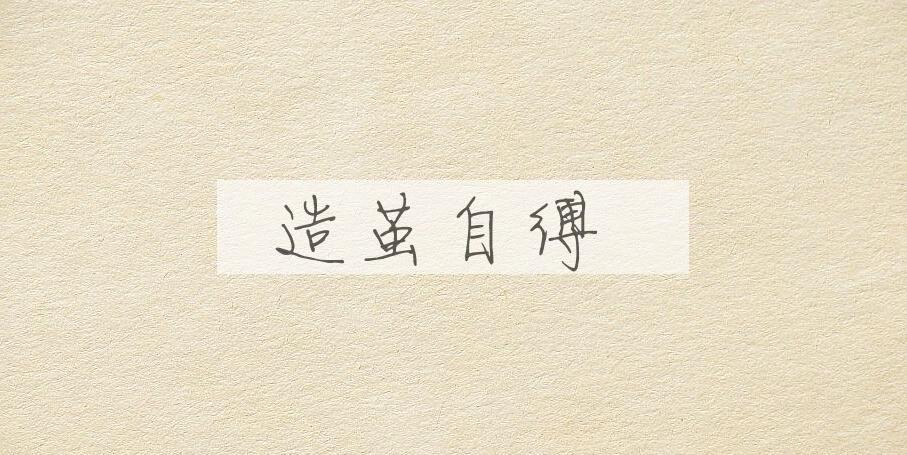 造茧自缚